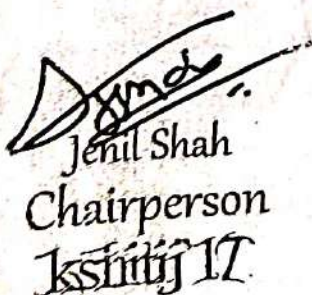 Jenil Shah
Chairperson
kshitij 17